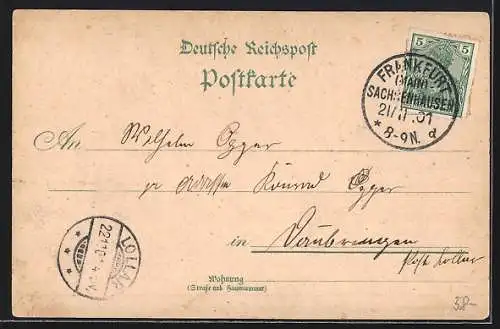 Deutsche Reichspost
Postkarte
5 5
FRANKFURT
(MAIN)
SACHSENHAUSEN
21/11.01
* 8-9N. d
An Wilhelm Egger
pr Adressen Konrad Egger
in Daubringen
Post Lollar
LOLLAR
22.11.01
Wohnung
(Straße und Hausnummer)
38-